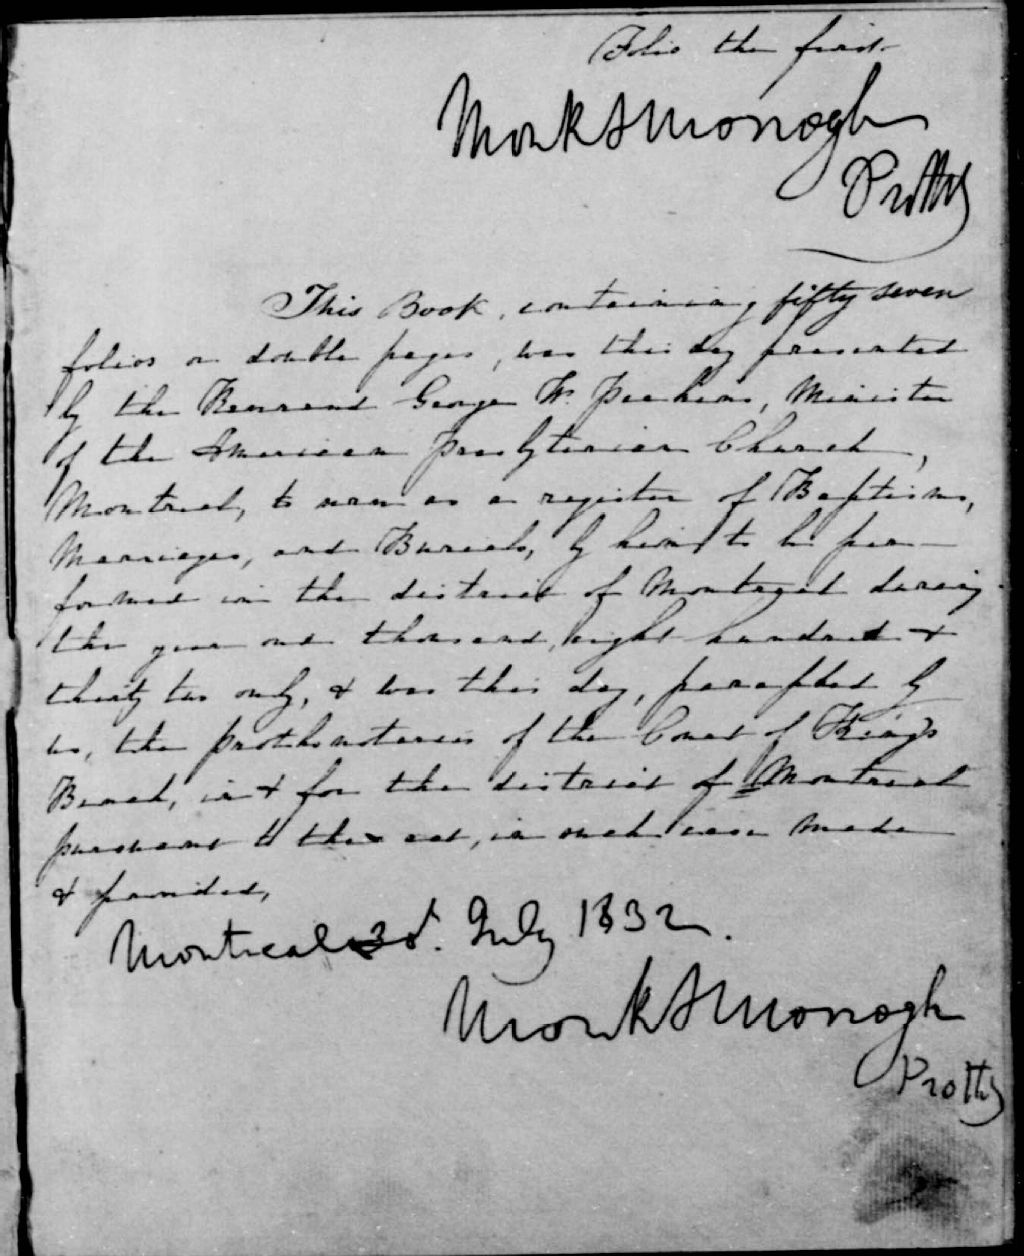 Folio the first
Monk & Monogh
Prothy
This Book, containing fifty seven
folios or double pages, was this day presented
by the Reverend George W. Perkins, Minister
of the American Presbyterian Church,
Montreal, to serve as a register of Baptisms,
Marriages, and Burials, by him to be per-
formed in the district of Montreal during
the year one thousand, eight hundred &
thirty two only, & was this day, paraphed by
us, the prothonotaries of the Court of King's
Bench, in & for the district of Montreal
pursuant to the act, in such case made
& provided,
Montreal 3d. July 1832.
Monk & Monogh
Prothy